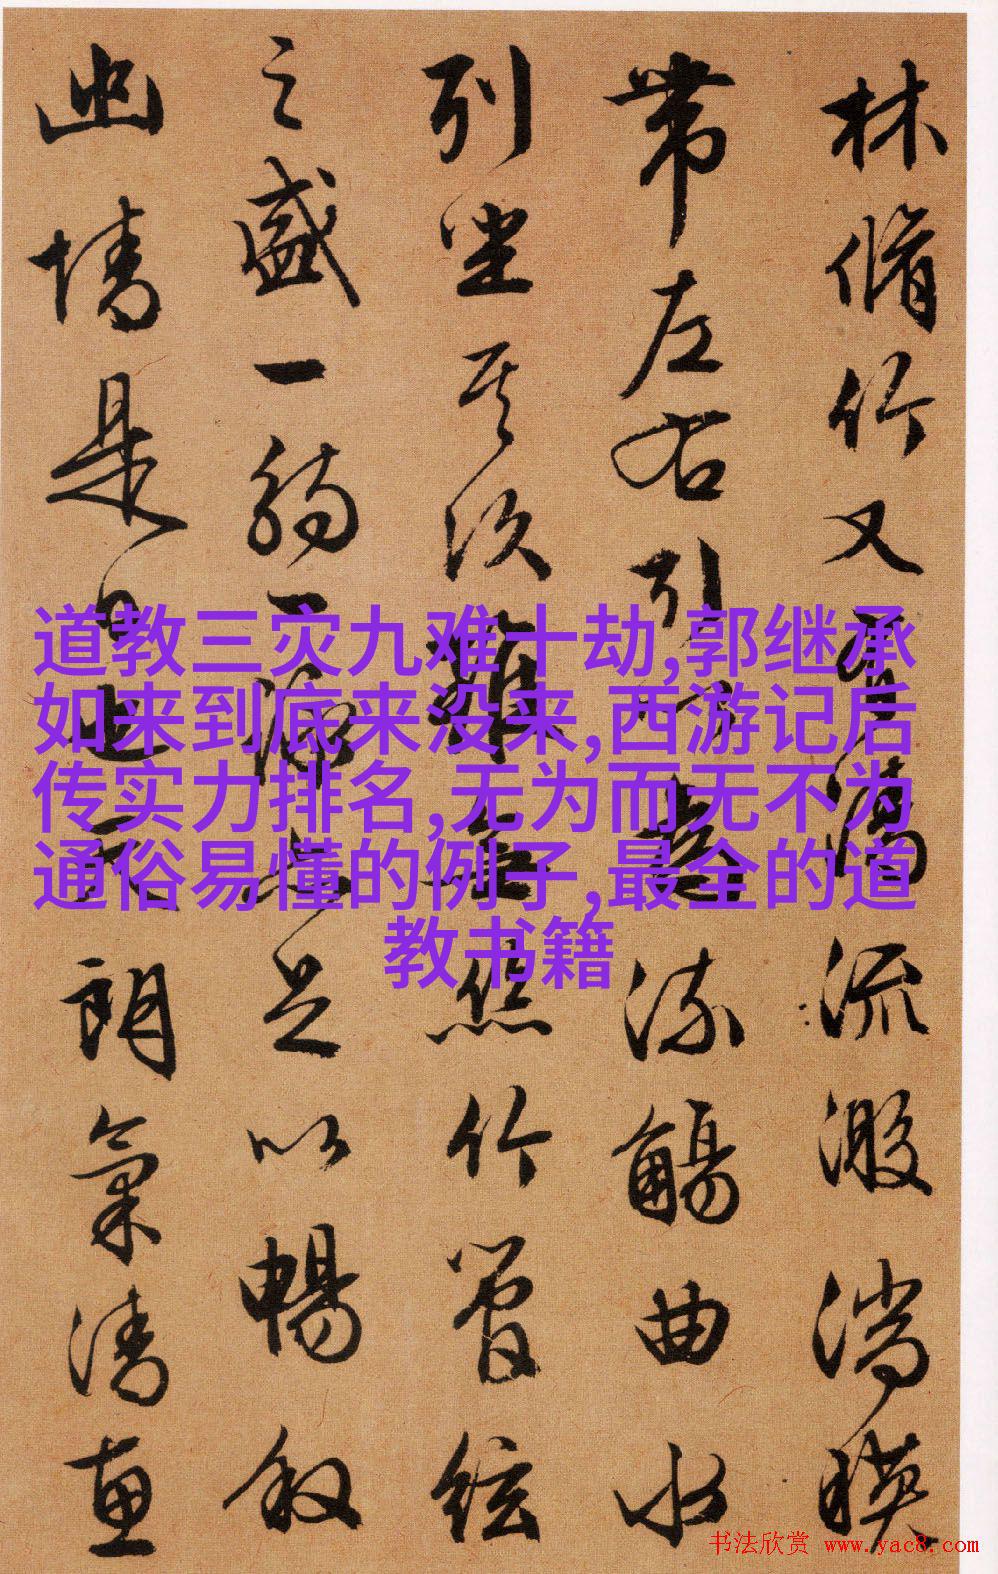 林脩竹又有清流激湍映
帶左右引以為流觴曲水
列坐其次雖無絲竹管絃
之盛一觴一詠亦足以暢敘
幽情是日也天朗氣清惠
道教三灾九难十劫,郭继承
如来到底来没来,西游记后
传实力排名,无为而无不为
通俗易懂的例子,最全的道
教书籍
书法欣赏 www.yac8.com